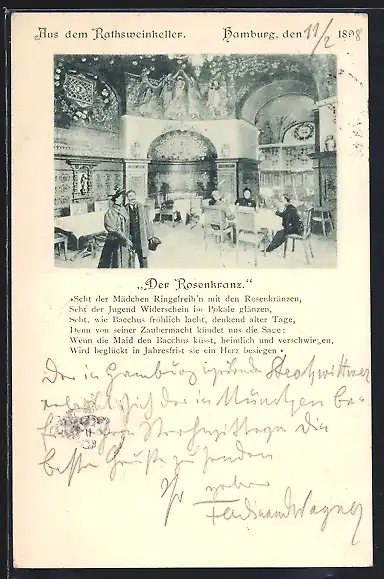 Aus dem Rathsweinkeller. Hamburg, den 11/2 1898
„Der Rosenkranz.“
»Seht der Mädchen Ringelreih'n mit den Rosenkränzen,
Seht der Jugend Widerschein im Pokale glänzen,
Seht, wie Bacchus fröhlich lacht, denkend alter Tage,
Denn von seiner Zaubermacht kündet uns die Sage:
Wenn die Maid den Bacchus küsst, heimlich und verschwiegen,
Wird beglückt in Jahresfrist sie ein Herz besiegen.«
Der in Hamburg Strohwittwer
sich der in München be-
Strohwittwe die
beste Grüße zu senden
Ihr
Ferdinand Wagner